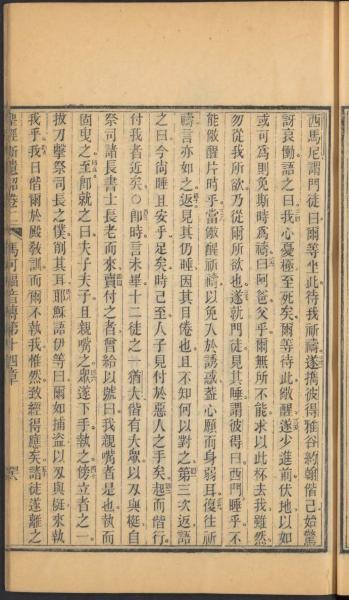 西馬尼謂門徒曰爾等坐此待我祈禱遂攜彼得雅各約翰偕己始驚
訝哀慟語之曰我心憂極至死矣爾等待此儆醒遂少進前伏地以如
或可爲則免斯時爲禱曰阿爸父乎爾無所不能求以此杯去我雖然
勿從我所欲乃從爾所欲也遂就門徒見其睡謂彼得曰西門睡乎不
能儆醒片時乎當儆醒祈禱以免入於誘惑蓋心願而身弱耳復往祈
禱言亦如之返見其仍睡因其目倦也且不知何以對之第三次返語
之曰今尚睡且安乎足矣時己至人子見付於惡人之手矣起而偕行
付我者近矣〇即時言未畢十二徒之一猶大偕有大眾以刃與梃自
祭司諸長書士長老而來賣付之者曾給以號曰我親嘴者是也執而
固曳之至即就之曰夫子夫子且親嘴之眾遂下手執之傍立者之一
拔刀擊祭司長之僕削其耳耶穌語伊等曰爾如捕盜以刃與梃來執
我乎我日偕爾於殿教訓而爾不執我惟然致經得應矣諸徒遂離之
聖經新遺詔卷二 馬可福音傳第十四章